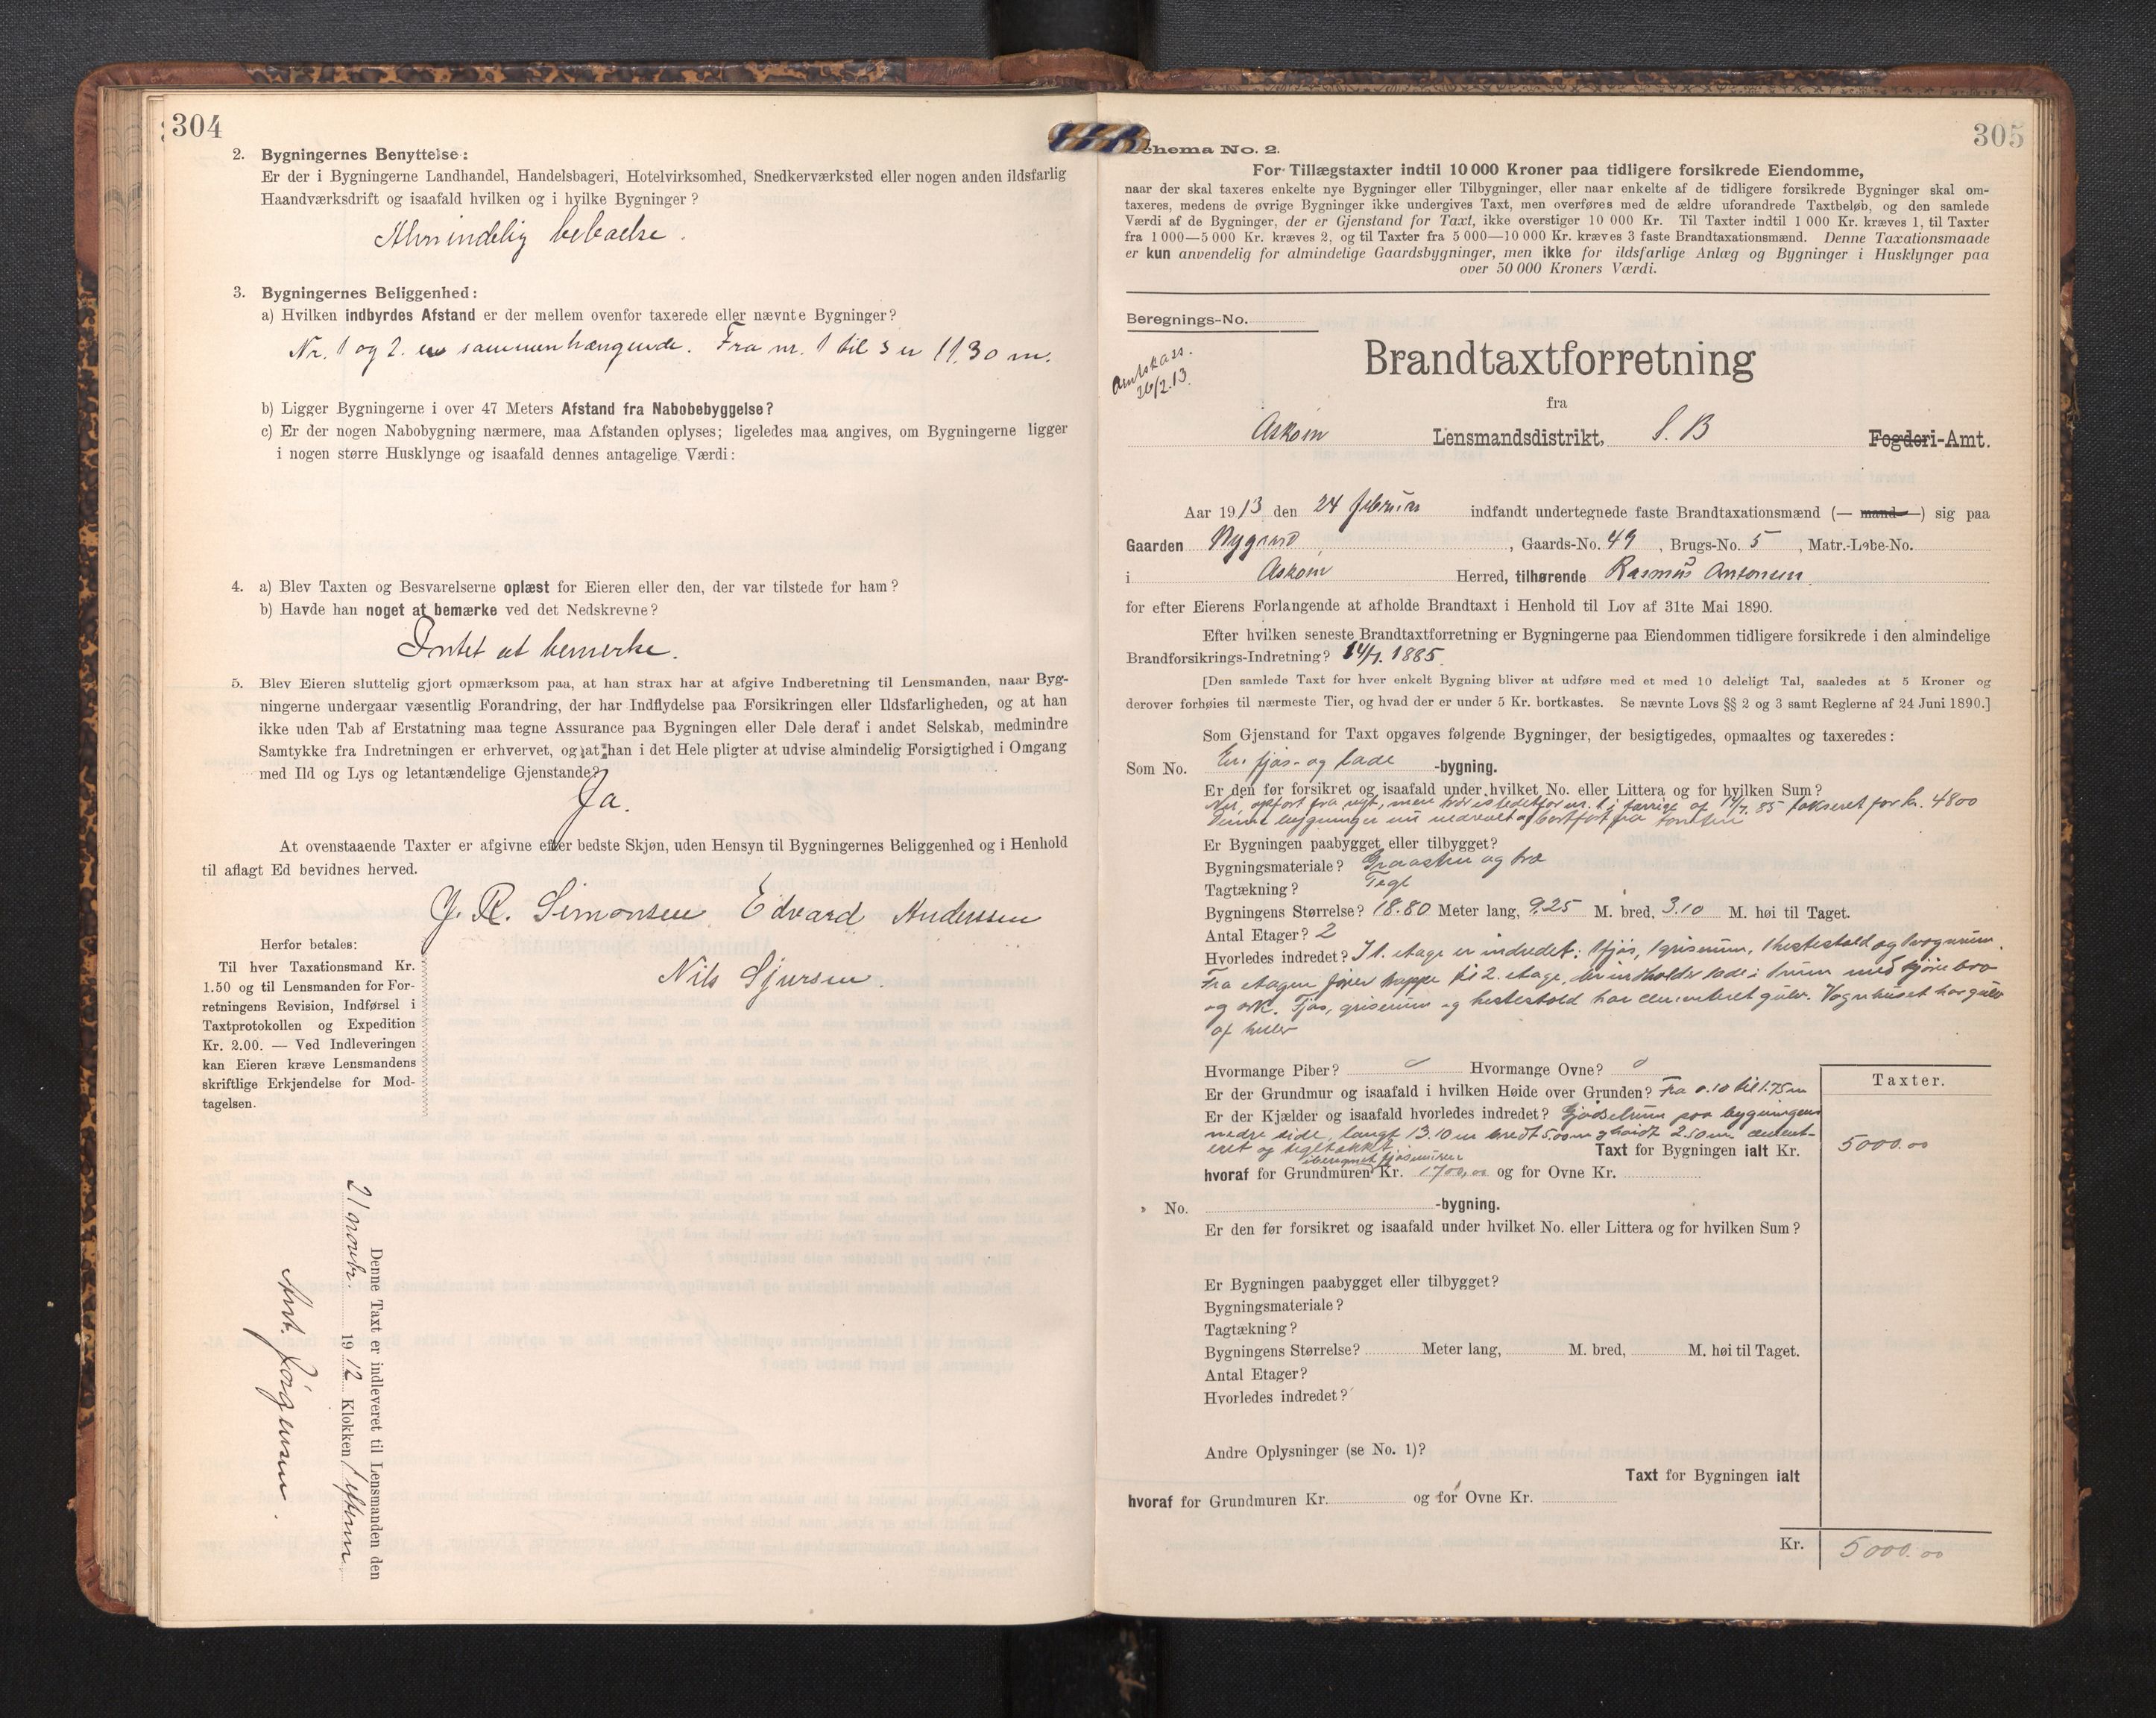 304
2. Bygningernes Benyttelse:
Er der i Bygningerne Landhandel, Handelsbageri, Hotelvirksomhed, Snedkerværksted eller nogen anden ildsfarlig
Haandværksdrift og isaafald hvilken og i hvilke Bygninger?
Almindelig beboelse.
3. Bygningernes Beliggenhed:
a) Hvilken indbyrdes Afstand er der mellem ovenfor taxerede eller nævnte Bygninger?
Nr. 1 og 2. er sammenhængende. Fra nr. 1 til 3 er 11.30 m.
b) Ligger Bygningerne i over 47 Meters Afstand fra Nabobebyggelse?
c) Er der nogen Nabobygning nærmere, maa Afstanden oplyses; ligeledes maa angives, om Bygningerne ligger
i nogen større Husklynge og isaafald dennes antagelige Værdi:
4. a) Blev Taxten og Besvarelserne oplæst for Eieren eller den, der var tilstede for ham?
b) Havde han noget at bemærke ved det Nedskrevne?
Intet at bemerke.
5. Blev Eieren sluttelig gjort opmærksom paa, at han strax har at afgive Indberetning til Lensmanden, naar Byg-
ningerne undergaar væsentlig Forandring, der har Indflydelse paa Forsikringen eller Ildsfarligheden, og at han
ikke uden Tab af Erstatning maa tegne Assurance paa Bygningen eller Dele deraf i andet Selskab, medmindre
Samtykke fra Indretningen er erhvervet, og at han i det Hele pligter at udvise almindelig Forsigtighed i Omgang
med Ild og Lys og letantændelige Gjenstande?
Ja.
At ovenstaaende Taxter er afgivne efter bedste Skjøn, uden Hensyn til Bygningernes Beliggenhed og i Henhold
til aflagt Ed bevidnes herved.
J. R. Simonsen Edvard Anderssen
Nils Sjursen.
Herfor betales:
Til hver Taxationsmand Kr.
1.50 og til Lensmanden for For-
retningens Revision, Indførsel i
Taxtprotokollen og Expedition
Kr. 2.00. — Ved Indleveringen
kan Eieren kræve Lensmandens
skriftlige Erkjendelse for Mod-
tagelsen.
Denne Taxt er indleveret til Lensmanden den
21 novbr. 1912 Klokken 1 efterm
Joh. Jörgensen.
305
Schema No. 2.
For Tillægstaxter indtil 10 000 Kroner paa tidligere forsikrede Eiendomme,
naar der skal taxeres enkelte nye Bygninger eller Tilbygninger, eller naar enkelte af de tidligere forsikrede Bygninger skal om-
taxeres, medens de øvrige Bygninger ikke undergives Taxt, men overføres med de ældre uforandrede Taxtbeløb, og den samlede
Værdi af de Bygninger, der er Gjenstand for Taxt, ikke overstiger 10 000 Kr. Til Taxter indtil 1 000 Kr. kræves 1, til Taxter
fra 1 000—5 000 Kr. kræves 2, og til Taxter fra 5 000—10 000 Kr. kræves 3 faste Brandtaxationsmænd. Denne Taxationsmaade
er kun anvendelig for almindelige Gaardsbygninger, men ikke for ildsfarlige Anlæg og Bygninger i Husklynger paa
over 50 000 Kroners Værdi.
Beregnings-No.
Amtskass.
26/2.13.
Brandtaxtforretning
fra
Askøin Lensmandsdistrikt, S. B Fogderi-Amt.
Aar 1913 den 24 februar indfandt undertegnede faste Brandtaxationsmænd (— mand —) sig paa
Gaarden Nygard, Gaards-No. 49, Brugs-No. 5, Matr.-Løbe-No.
i Askøin Herred, tilhørende Rasmus Antonsen
for efter Eierens Forlangende at afholde Brandtaxt i Henhold til Lov af 31te Mai 1890.
Efter hvilken seneste Brandtaxtforretning er Bygningerne paa Eiendommen tidligere forsikrede i den almindelige
Brandforsikrings-Indretning? 14/7. 1885.
[Den samlede Taxt for hver enkelt Bygning bliver at udføre med et med 10 deleligt Tal, saaledes at 5 Kroner og
derover forhøies til nærmeste Tier, og hvad der er under 5 Kr. bortkastes. Se nævnte Lovs §§ 2 og 3 samt Reglerne af 24 Juni 1890.]
Som Gjenstand for Taxt opgaves følgende Bygninger, der besigtigedes, opmaaltes og taxeredes:
Som No. En fjøs- og lade -bygning.
Er den før forsikret og isaafald under hvilket No. eller Littera og for hvilken Sum?
Nei, opført fra nyt, men istedetfor nr. 1 i af 14/7. 85 takseret for kr. 4800
Denne bygninger nu nedrevet og bortført fra tomten
Er Bygningen paabygget eller tilbygget?
Bygningsmateriale? Graasten og træ
Tagtækning? Tegl
Bygningens Størrelse? 18.80 Meter lang, 9.25 M. bred, 3.10 M. høi til Taget.
Antal Etager? 2
Hvorledes indredet? I 1. etage er indredet: 1 fjøs, 1 griserum, 1 hestestald og 1 vognrum.
Fra etagen fører trappe til 2. etage, der indholder lade i 1 rum med kjørebro
og ark. Fjøs, griserum og hestestald har cementeret gulv. Vognhuset har gulv
af
Hvormange Piber? o Hvormange Ovne? o
Er der Grundmur og isaafald i hvilken Høide over Grunden? Fra 0.10 til 1.75 m
Er der Kjælder og isaafald hvorledes indredet? Gjødselrum paa bygningens
nedre side, langt 13.10 m bredt 5.00 m og høidt 2.50 m cement-
eret og tegltækket Taxt for Bygningen ialt Kr.
iberegnet fjøsmuren
hvoraf for Grundmuren Kr. 1700,00 og for Ovne Kr.
Taxter.
5000.00
" No. -bygning.
Er den før forsikret og isaafald under hvilket No. eller Littera og for hvilken Sum?
Er Bygningen paabygget eller tilbygget?
Bygningsmateriale?
Tagtækning?
Bygningens Størrelse? Meter lang, M. bred, M. høi til Taget.
Antal Etager?
Hvorledes indredet?
Andre Oplysninger (se No. 1)?
Taxt for Bygningen ialt
hvoraf for Grundmuren Kr. og for Ovne Kr.
Kr. 5000.00